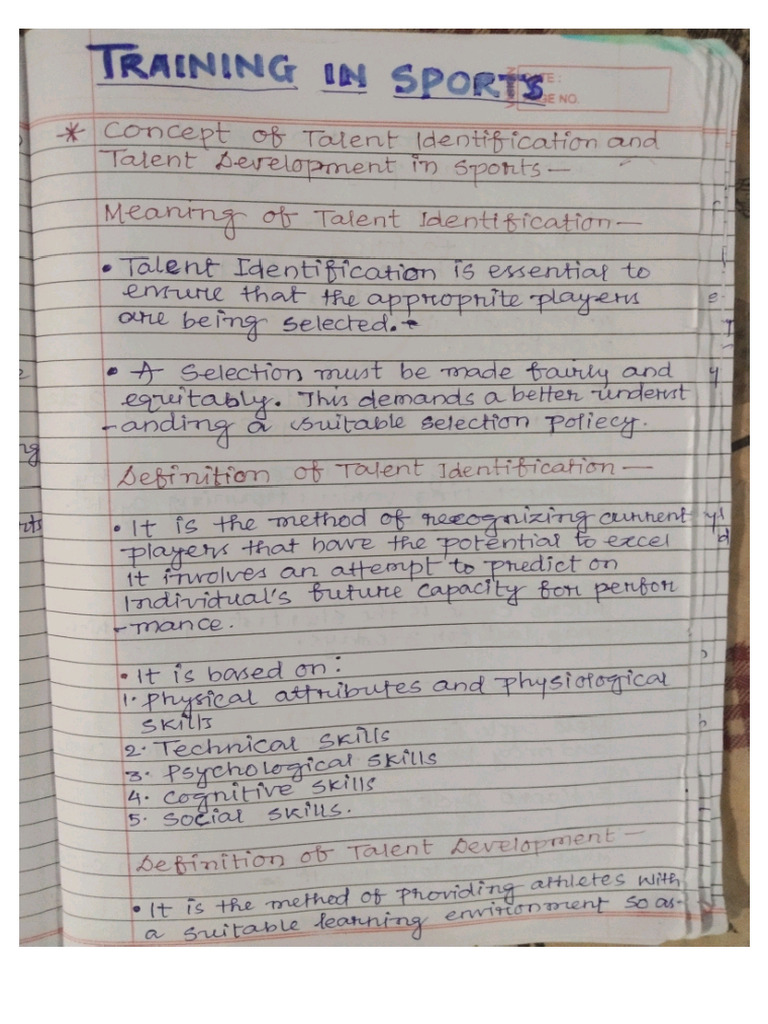 TRAINING IN SPORTS
PAGE NO.
* Concept of Talent Identification and
Talent Development in Sports —
Meaning of Talent Identification —
• Talent Identification is essential to
ensure that the approprite players
are being selected.
• A Selection must be made fairly and
equitably. This demands a better underst
-anding a suitable selection poliecy.
Definition of Talent Identification —
• It is the method of recognizing current
players that have the potential to excel
It involves an attempt to predict on
Individual's future capacity for perfor
-mance.
• It is based on:
1. Physical attributes and Physiological
skills
2. Technical skills
3. Psychological skills
4. Cognitive skills
5. Social skills.
Definition of Talent Development —
• It is the method of Providing athletes with
a suitable learning environment so as-